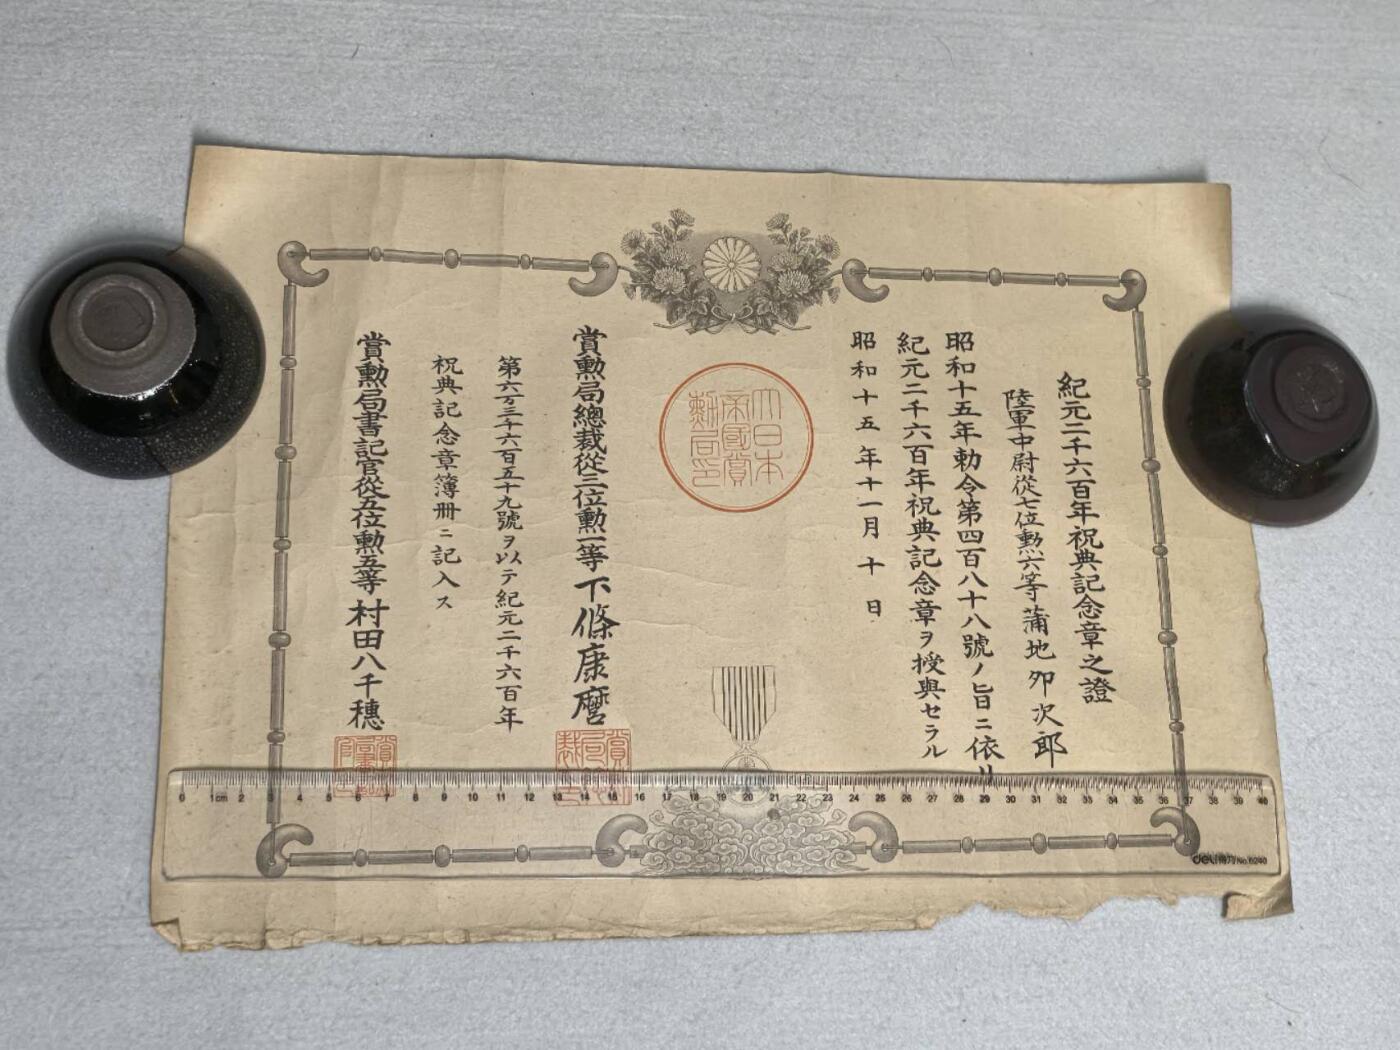 紀元二千六百年祝典記念章之證
陸軍中尉從七位勲六等蒲地卯次郎
昭和十五年勅令第四百八十八號ノ旨ニ依リ
紀元二千六百年祝典記念章ヲ授與セラル
昭和十五年十一月十日
大日本
帝國賞
勲局印
賞勲局總裁從三位勲一等下條康麿
第六万三千六百五十九號ヲ以テ紀元二千六百年
祝典記念章簿冊ニ記入ス
賞勲局書記官從五位勲五等村田八千穗
0 1cm 2 3 4 5 6 7 8 9 10 11 12 13 14 15 16 17 18 19 20 21 22 23 24 25 26 27 28 29 30 31 32 33 34 35 36 37 38 39 40
deli得力 No.6240